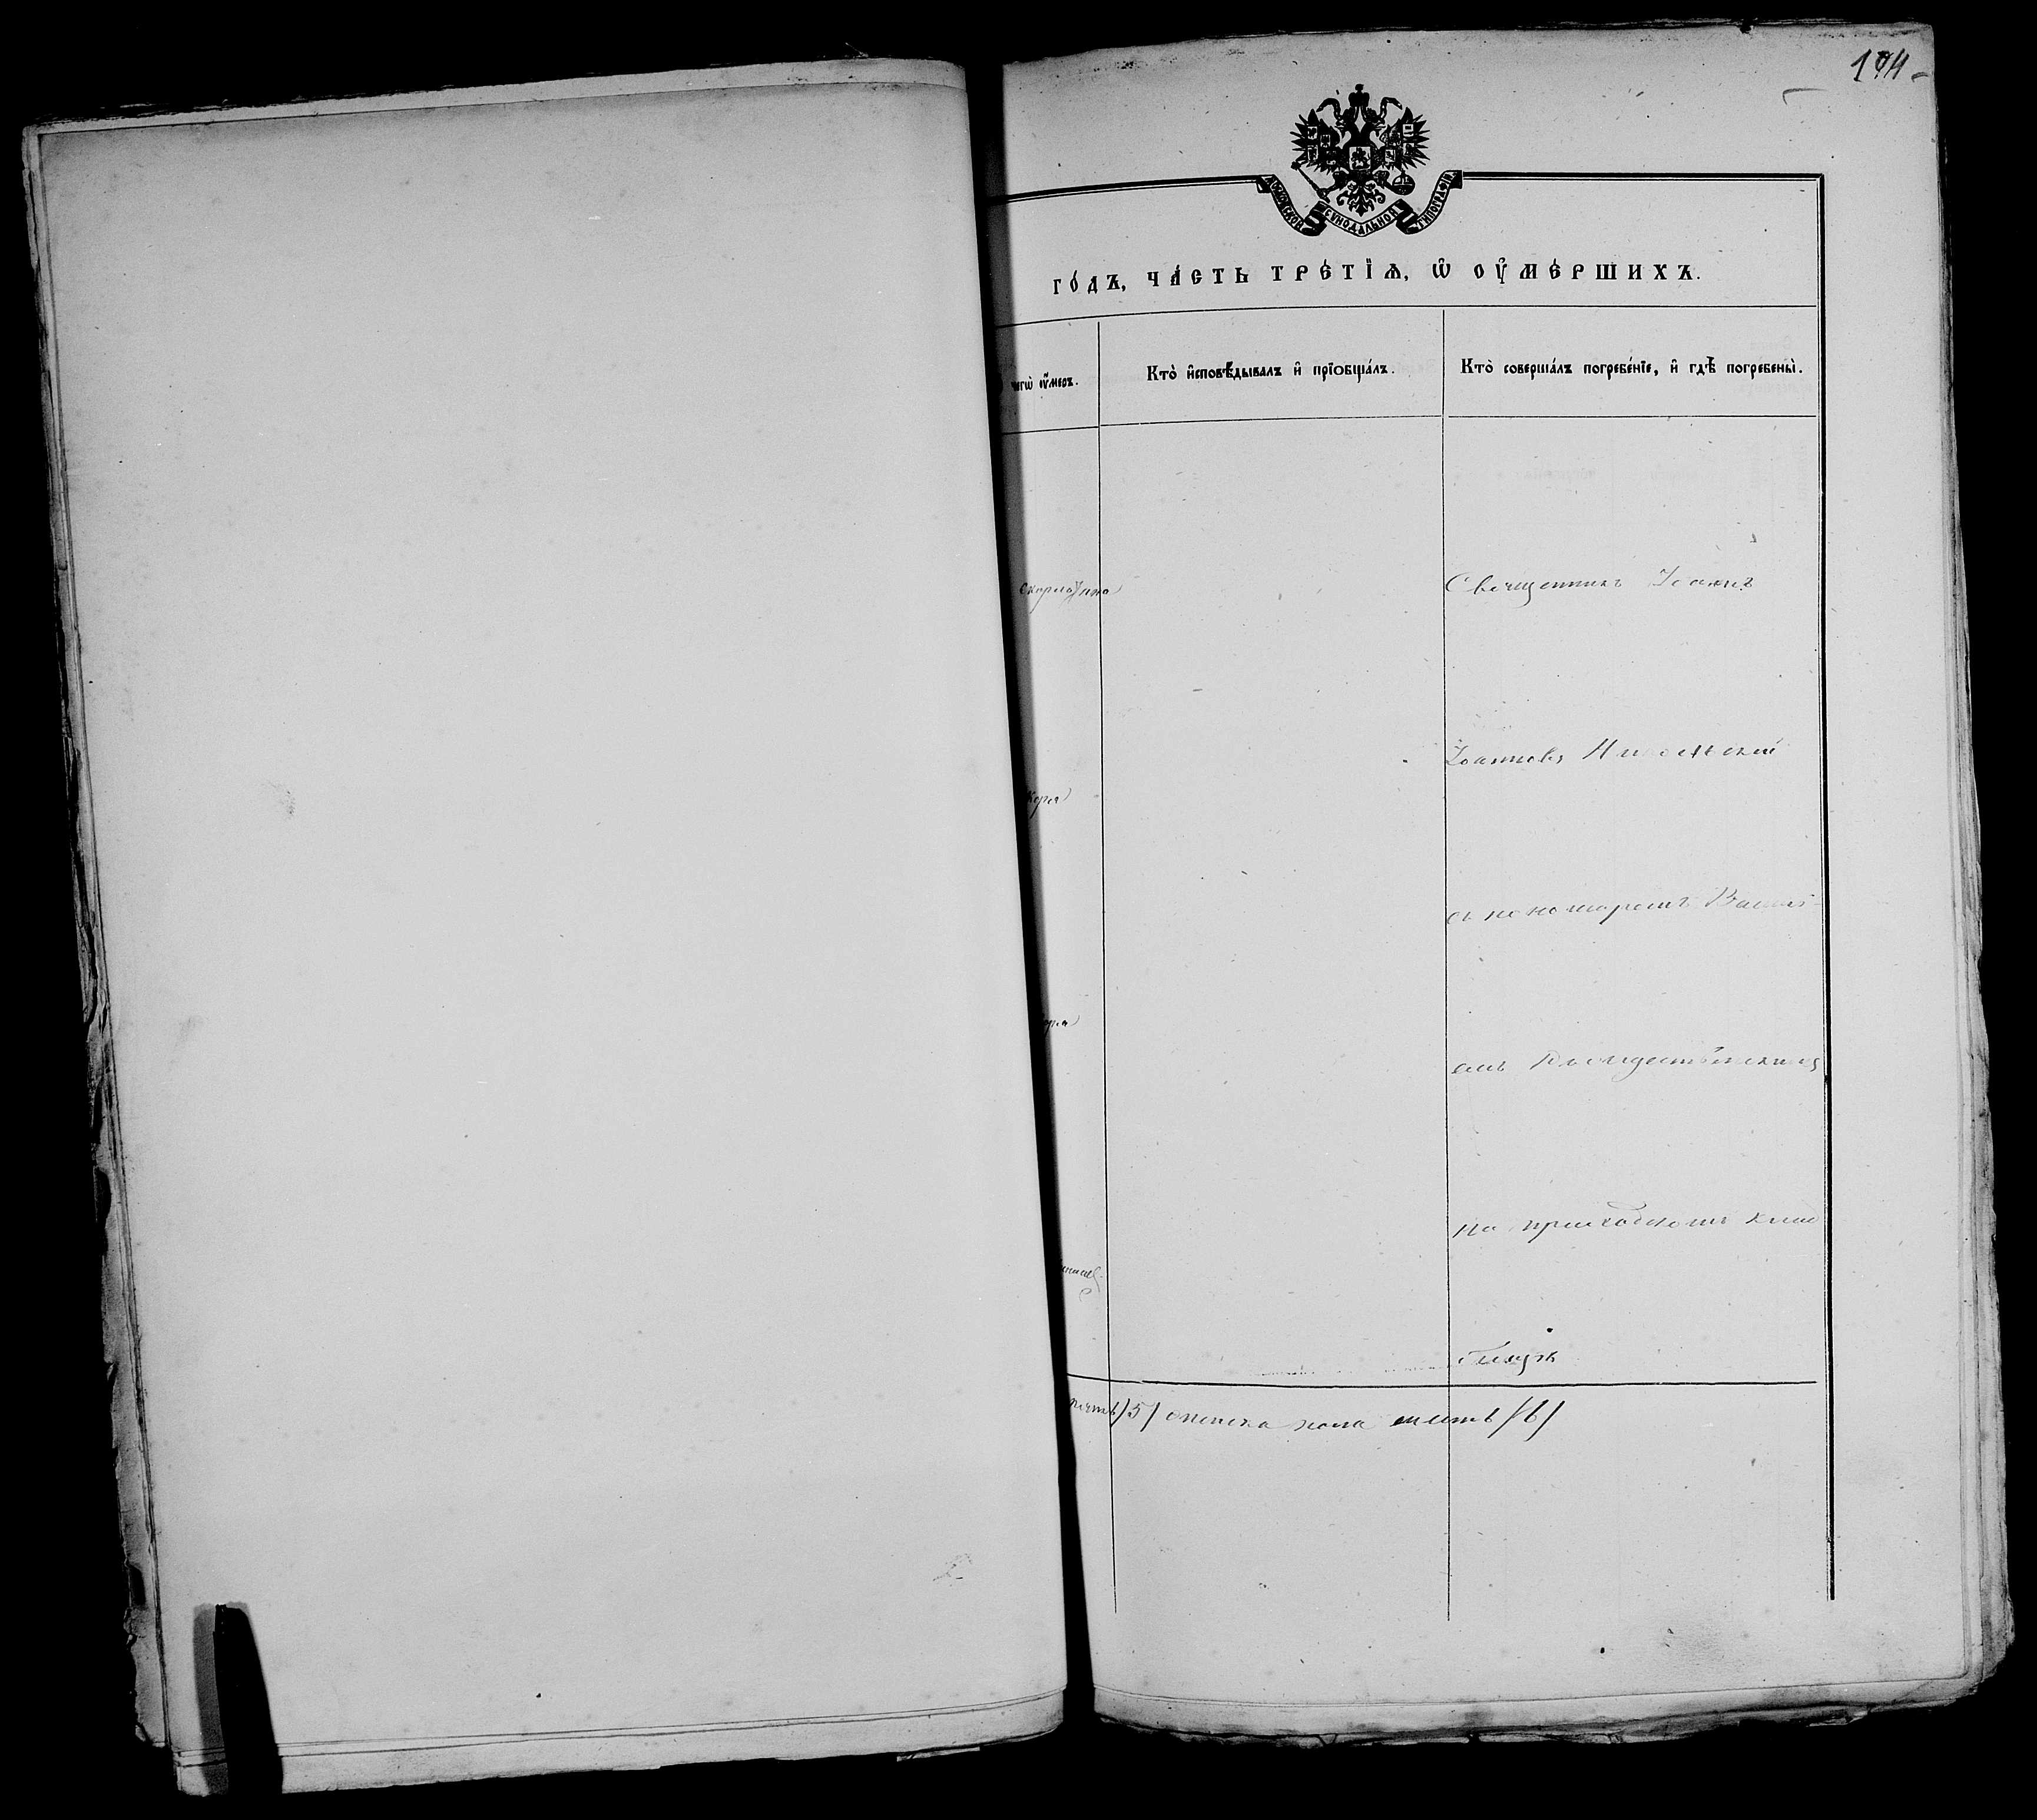 194
МОСКОВСКОЙ СУНОДАЛЬНОЙ ТИПОГРАФІИ
ГО́ДЪ, ЧА́СТЬ ТРЕ́ТІѦ, Ѡ҆ ОУ҆МЕ́РШИХЪ.
чегѡ̀ оу҆́меръ.
Кто̀ и҆сповѣ́дывалъ и҆ прїобща́лъ.
Кто̀ соверша́лъ погребе́нїе, и҆ гдѣ̀ погребены̀.
Священникъ Іоаннъ
Іоанновъ Никольскій
кори
съ пономаремъ Васил-
емъ Рождественскимъ
на приходскомъ клад
бищѣ
/5/ женска пола шесть /6/